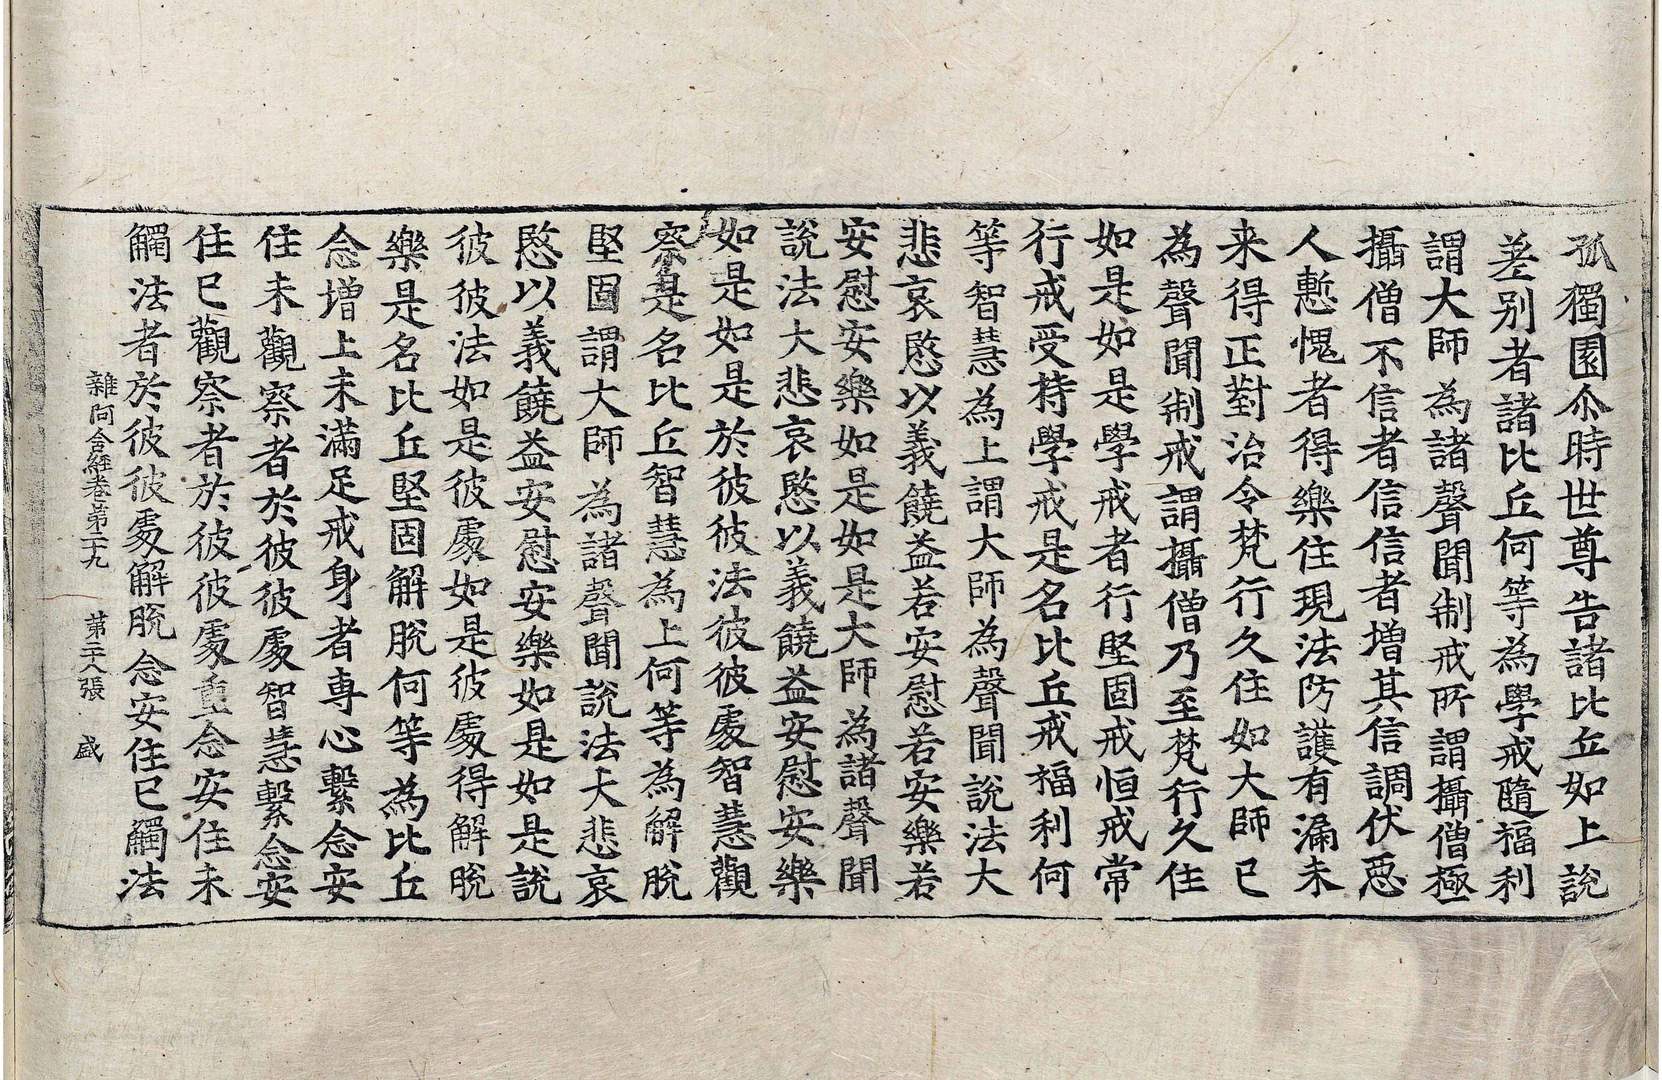 孤獨園尒時世尊告諸比丘如上說
差別者諸比丘何等為學戒隨福利
謂大師為諸聲聞制戒所謂攝僧極
攝僧不信者信信者增其信調伏惡
人慙愧者得樂住現法防護有漏未
来得正對治令梵行久住如大師已
為聲聞制戒謂攝僧乃至梵行久住
如是如是學戒者行堅固戒恒戒常
行戒受持學戒是名比丘戒福利何
等智慧為上謂大師為聲聞說法大
悲哀愍以義饒益若安慰若安樂若
安慰安樂如是如是大師為諸聲聞
說法大悲哀愍以義饒益安慰安樂
如是如是於彼彼法彼彼處智慧觀
察是名比丘智慧為上何等為解脫
堅固謂大師為諸聲聞說法大悲哀
愍以義饒益安慰安樂如是如是說
彼彼法如是彼處如是彼處得解脫
樂是名比丘堅固解脫何等為比丘
念增上未滿足戒身者專心繫念安
住未觀察者於彼彼處智慧繫念安
住已觀察者於彼彼處重念安住未
觸法者於彼彼處解脫念安住已觸法
雜阿含經卷第二十九 第二十八張 盛